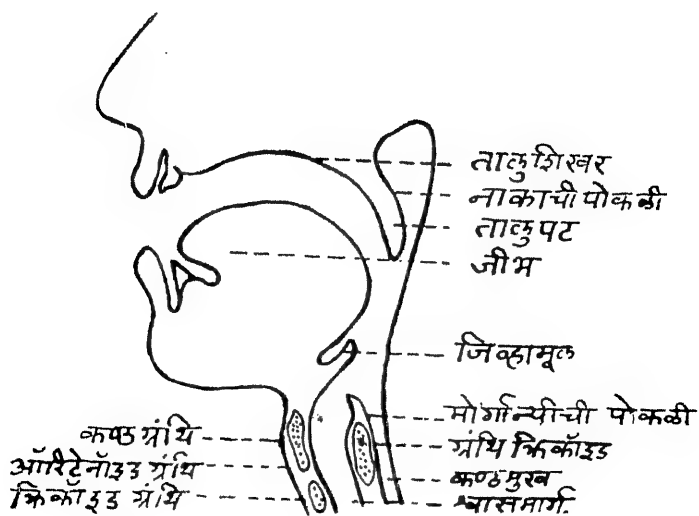 तालुशिखर
नाकाची पोकळी
तालुपट
जीभ
जिव्हामूल
मोर्गान्यीची पोकळी
ग्रंथि क्रिकॉइड
कण्ठमुख
श्वासमार्ग.
कण्ठ ग्रंथि
ऑरिटेनॉइड ग्रंथि
क्रिकॉइड ग्रंथि